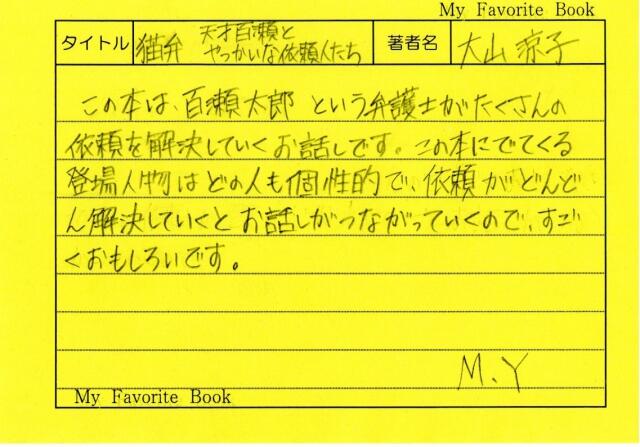 My Favorite Book
タイトル 猫弁 天才百瀬と やっかいな依頼人たち 著者名 大山涼子
この本は、百瀬太郎 という弁護士がたくさんの
依頼を解決していくお話しです。この本にでてくる
登場人物はどの人も個性的で、依頼がどんど
ん解決していくとお話しがつながっていくので、すご
くおもしろいです。
M.Y
My Favorite Book